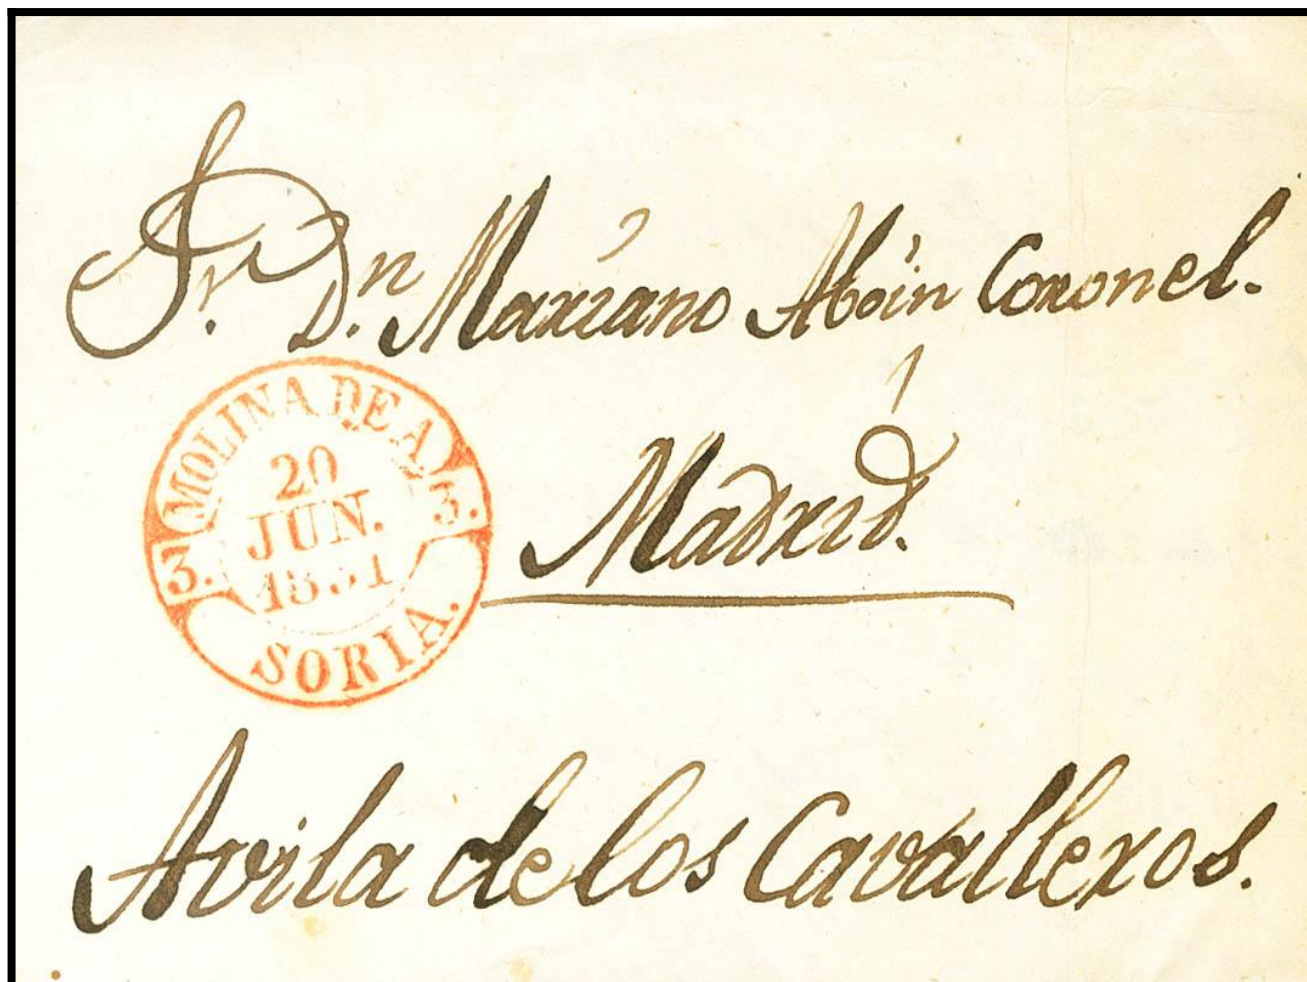 Sr. Dn. Mariano Aboin Coronel.
MOLINA DE A.
3.
20
JUN.
1851
3.
SORIA.
Madrid.
Avila de los Cavalleros.